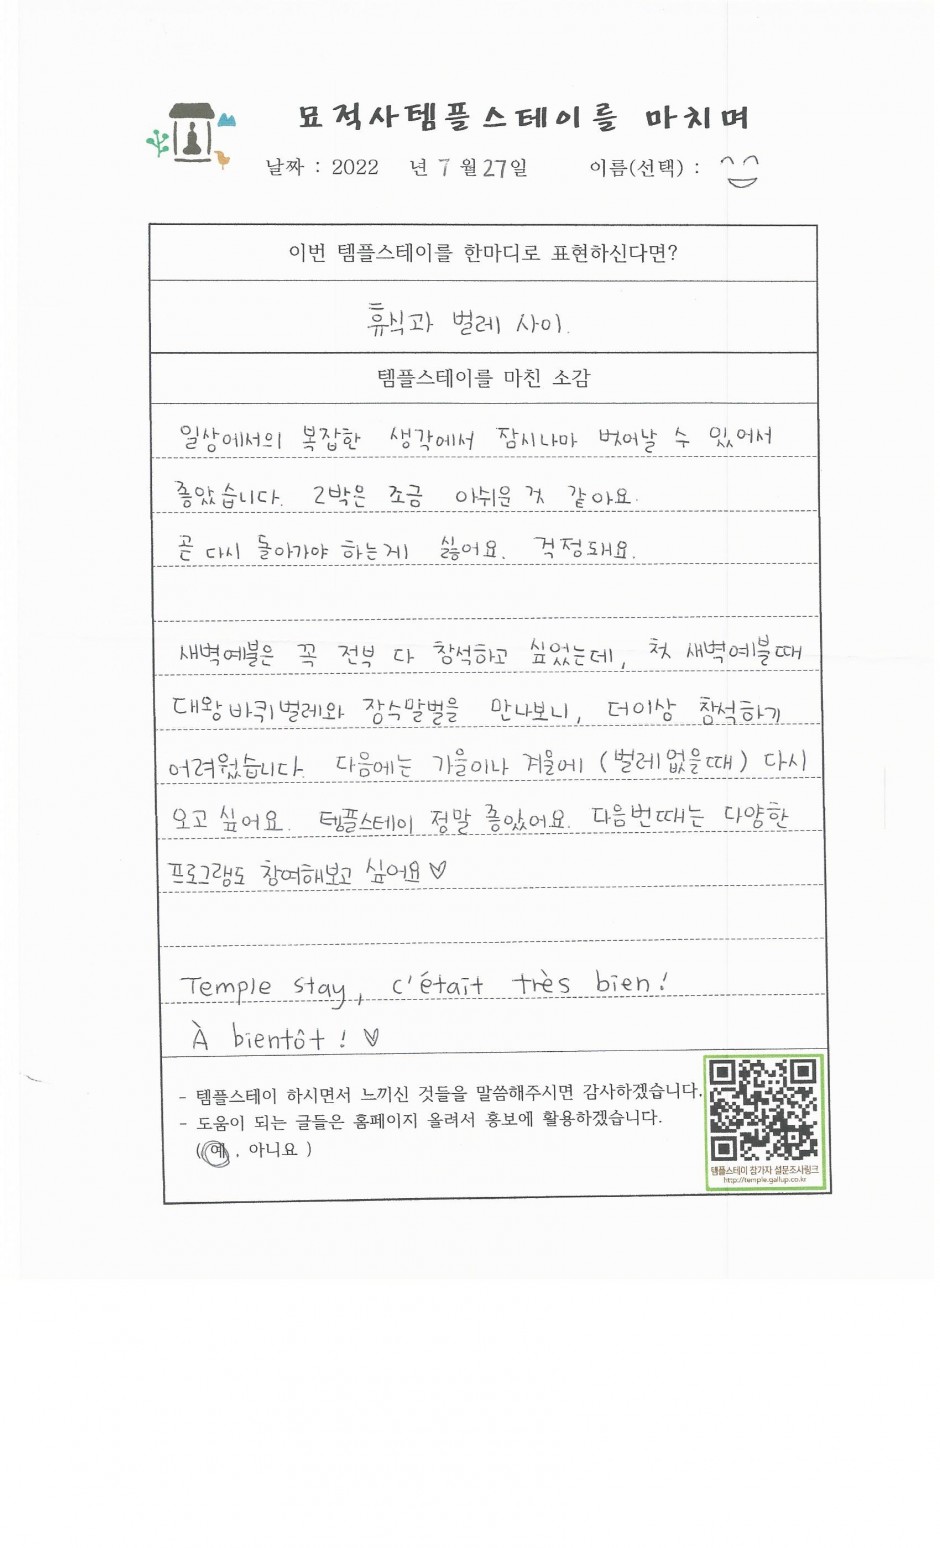 묘적사템플스테이를 마치며
날짜 : 2022 년 7 월 27일 이름(선택) :
이번 템플스테이를 한마디로 표현하신다면?
휴식과 벌레 사이.
템플스테이를 마친 소감
일상에서의 복잡한 생각에서 잠시나마 벗어날 수 있어서
좋았습니다. 2박은 조금 아쉬운 것 같아요.
곧 다시 돌아가야 하는게 싫어요. 걱정돼요.
새벽예불은 꼭 전부 다 참석하고 싶었는데, 첫 새벽예불때
대왕바퀴벌레와 장수말벌을 만나보니, 더이상 참석하기
어려웠습니다. 다음에는 가을이나 겨울에 (벌레없을때) 다시
오고 싶어요. 템플스테이 정말 좋았어요. 다음번때는 다양한
프로그램도 참여해보고 싶어요♡
Temple stay, c'était très bien!
À bientôt! ♡
- 템플스테이 하시면서 느끼신 것들을 말씀해주시면 감사하겠습니다.
- 도움이 되는 글들은 홈페이지 올려서 홍보에 활용하겠습니다.
(예, 아니요)
템플스테이 참가자 설문조사링크
http://temple.gallup.co.kr